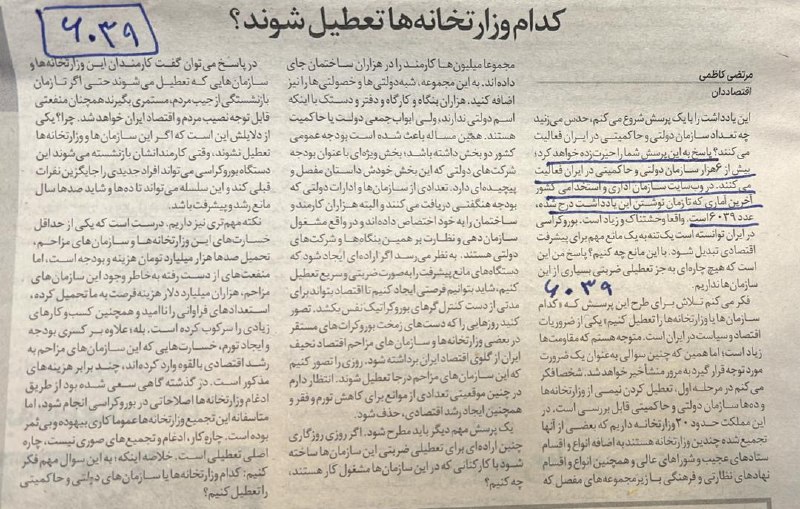 کدام وزارتخانه‌ها تعطیل شوند؟
۶۰۳۹
مرتضی کاظمی
اقتصاددان
این یادداشت را با یک پرسش شروع می‌کنم، حدس می‌زنید
چه تعداد سازمان دولتی و حاکمیتی در ایران فعالیت
می‌کنند؟ پاسخ به این پرسش شما را حیرت‌زده خواهد کرد؛
بیش از ۶هزار سازمان دولتی و حاکمیتی در ایران فعالیت
می‌کنند. در وب‌سایت سازمان اداری و استخدامی کشور
آخرین آماری که تا زمان نوشتن این یادداشت درج شده،
عدد ۶۰۳۹ است. واقعا وحشتناک و زیاد است. بوروکراسی
در ایران توانسته است یک‌تنه به یک مانع مهم برای پیشرفت
اقتصادی تبدیل شود. با این مانع چه کنیم؟ پاسخ من این
است که هیچ چاره‌ای به جز تعطیلی ضربتی بسیاری از این
سازمان‌ها نداریم.
۶۰۳۹
فکر می‌کنم تلاش برای طرح این پرسش که «کدام
سازمان‌ها یا وزارتخانه‌ها را تعطیل کنیم» یکی از ضروریات
اقتصاد و سیاست در ایران است. متوجه هستم که مقاومت‌ها
زیاد است؛ اما همین که چنین سوالی به‌عنوان یک ضرورت
مورد توجه قرار گیرد به مرور منشأ خیر خواهد شد. شخصا فکر
می‌کنم در مرحله اول، تعطیل کردن نیمی از وزارتخانه‌ها
و ده‌ها سازمان دولتی و حاکمیتی قابل بررسی است. در
این مملکت حدود ۲۰ وزارتخانه داریم که بعضی از آنها
تجمیع شده چندین وزارتخانه هستند به اضافه انواع و اقسام
ستادهای عجیب و شوراهای عالی و همچنین انواع و اقسام
نهادهای نظارتی و فرهنگی با زیرمجموعه‌های مفصل که
مجموعا میلیون‌ها کارمند را در هزاران ساختمان جای
داده‌اند. به این مجموعه، شبه‌دولتی‌ها و خصولتی‌ها را نیز
اضافه کنید. هزاران بنگاه و کارگاه و دفتر و دستک با اینکه
اسم دولتی ندارند، ولی ابواب جمعی دولت یا حاکمیت
هستند. همین مساله باعث شده است بودجه عمومی
کشور دو بخش داشته باشد؛ بخش ویژه‌ای با عنوان بودجه
شرکت‌های دولتی که این بخش خودش داستان مفصل و
پیچیده‌ای دارد. تعدادی از سازمان‌ها و ادارات دولتی که
بودجه هنگفتی دریافت می‌کنند و البته هزاران کارمند و
ساختمان را به خود اختصاص داده‌اند و در واقع مشغول
سازمان‌دهی و نظارت بر همین بنگاه‌ها و شرکت‌های
دولتی هستند. به نظر می‌رسد اگر اراده‌ای ایجاد شود که
دستگاه‌های مانع پیشرفت را به صورت ضربتی و سریع تعطیل
کنیم، شاید بتوانیم فرصتی ایجاد کنیم تا اقتصاد بتواند برای
مدتی از دست کنترل‌گرهای بوروکراتیک نفس بکشد. تصور
کنید روزهایی را که دست‌های زمخت بوروکرات‌های مستقر
در بعضی وزارتخانه‌ها و سازمان‌های مزاحم اقتصاد نحیف
ایران از گلوی اقتصاد ایران برداشته شود. روزی را تصور کنیم
که این سازمان‌های مزاحم درجا تعطیل شوند. انتظار دارم
در چنین موقعیتی تعدادی از موانع برای کاهش تورم و فقر و
همچنین ایجاد رشد اقتصادی، حذف شود.
یک پرسش مهم دیگر باید مطرح شود. اگر روزی روزگاری
چنین اراده‌ای برای تعطیلی ضربتی این سازمان‌ها ساخته
شود با کارکنانی که در این سازمان‌ها مشغول کار هستند،
چه کنیم؟
در پاسخ می‌توان گفت کارمندان این وزارتخانه‌ها و
سازمان‌هایی که تعطیل می‌شوند حتی اگر تا زمان
بازنشستگی از جیب مردم، مستمری بگیرند همچنان منفعتی
قابل توجه نصیب مردم و اقتصاد ایران خواهد شد. چرا؟ یکی
از دلایلش این است که اگر این سازمان‌ها و وزارتخانه‌ها
تعطیل نشوند، وقتی کارمندانشان بازنشسته می‌شوند این
دستگاه بوروکراسی می‌تواند افراد جدیدی را جایگزین نفرات
قبلی کند و این سلسله می‌تواند تا ده‌ها و شاید صدها سال
مانع رشد و پیشرفت باشد.
نکته مهم‌تری نیز داریم. درست است که یکی از حداقل
خسارت‌های این وزارتخانه‌ها و سازمان‌های مزاحم،
تحمیل صدها هزار میلیارد تومان هزینه و بودجه است، اما
منفعت‌های از دست رفته به خاطر وجود این سازمان‌های
مزاحم، هزاران میلیارد دلار هزینه فرصت به ما تحمیل کرده،
استعدادهای فراوانی را ناامید و همچنین کسب و کارهای
زیادی را سرکوب کرده است. بله، علاوه بر کسری بودجه
و ایجاد تورم، خسارت‌هایی که این سازمان‌های مزاحم به
رشد اقتصادی بالقوه وارد کرده‌اند، چند برابر هزینه‌های
مذکور است. در گذشته گاهی سعی شده بود از طریق
ادغام وزارتخانه‌ها اصلاحاتی در بوروکراسی انجام شود، اما
متاسفانه این تجمیع وزارتخانه‌ها عموما کاری بیهوده و بی‌ثمر
بوده است. چاره کار، ادغام و تجمیع‌های صوری نیست، چاره
اصلی تعطیلی است. خلاصه اینکه؛ به این سوال مهم فکر
کنیم: کدام وزارتخانه‌ها یا سازمان‌های دولتی و حاکمیتی
را تعطیل کنیم؟